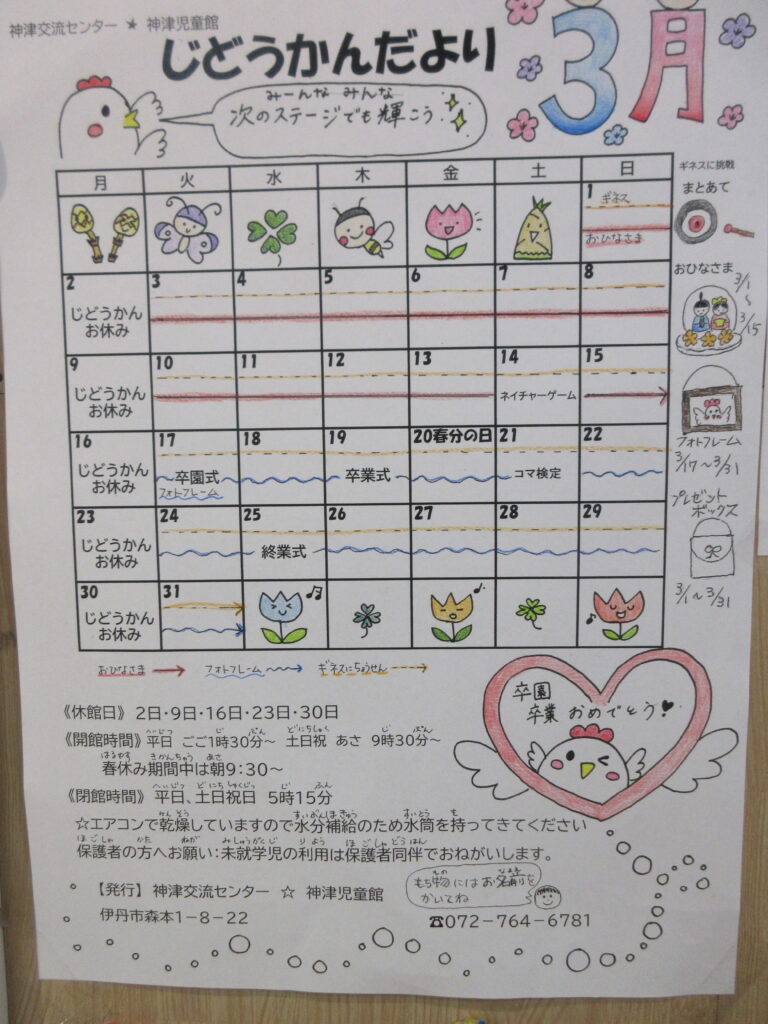 神津交流センター ★ 神津児童館
じどうかんだより
3月
みーんな みんな
次のステージでも輝こう
月 火 水 木 金 土 日
1 ギネス
おひなさま
2 3 4 5 6 7 8
じどうかん
お休み
9 10 11 12 13 14 15
じどうかん
お休み
ネイチャーゲーム
16 17 18 19 20春分の日 21 22
じどうかん
お休み
卒園式 卒業式 コマ検定
フォトフレーム
23 24 25 26 27 28 29
じどうかん
お休み
終業式
30 31
じどうかん
お休み
ギネスに挑戦
まとあて
おひなさま
3/1
~
3/15
フォトフレーム
3/17~3/31
プレゼント
ボックス
3/1~3/31
おひなさま フォトフレーム ギネスにちょうせん
卒園
卒業 おめでとう!
《休館日》 2日・9日・16日・23日・30日
《開館時間》 平日 ごご1時30分~ 土日祝 あさ 9時30分~
春休み期間中は朝9:30~
《閉館時間》 平日、土日祝日 5時15分
☆エアコンで乾燥していますので水分補給のため水筒を持ってきてください
保護者の方へお願い:未就学児の利用は保護者同伴でおねがいします。
もち物にはお名前を
かいてね
【発行】 神津交流センター ☆ 神津児童館
伊丹市森本1-8-22
☎072-764-6781